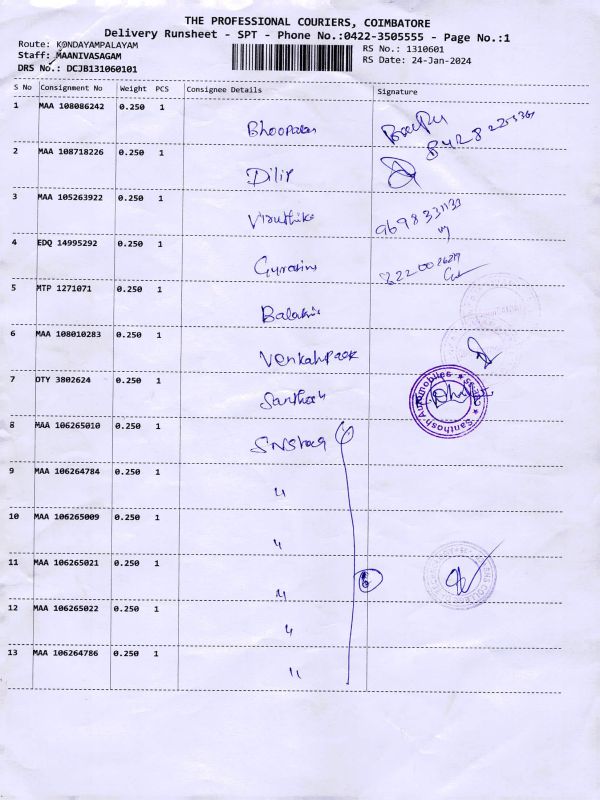 THE PROFESSIONAL COURIERS, COIMBATORE
Delivery Runsheet - SPT - Phone No.:0422-3505555 - Page No.:1
Route: KONDAYAMPALAYAM
RS No.: 1310601
Staff: MAANIVASAGAM
RS Date: 24-Jan-2024
DRS No.: DCJB131060101
S No Consignment No Weight PCS Consignee Details Signature
1 MAA 108086242 0.250 1
2 MAA 108718226 0.250 1 Dilip
3 MAA 105263922 0.250 1 Viruthika
4 EDQ 14995292 0.250 1
5 MTP 1271071 0.250 1
6 MAA 108010283 0.250 1
7 DTY 3802624 0.250 1 Santhosh
Santhosh Automobiles
8 MAA 106265010 0.250 1
9 MAA 106264784 0.250 1 "
10 MAA 106265009 0.250 1 "
11 MAA 106265021 0.250 1 " 6
12 MAA 106265022 0.250 1 "
13 MAA 106264786 0.250 1 "